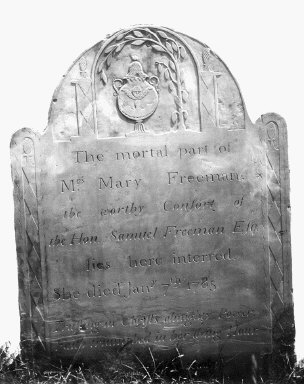 The mortal part of
Mrs Mary Freeman,
the worthy Consort of
the Hon. Samuel Freeman Esq.
lies here interred.
She died Jany 7th 1785
in